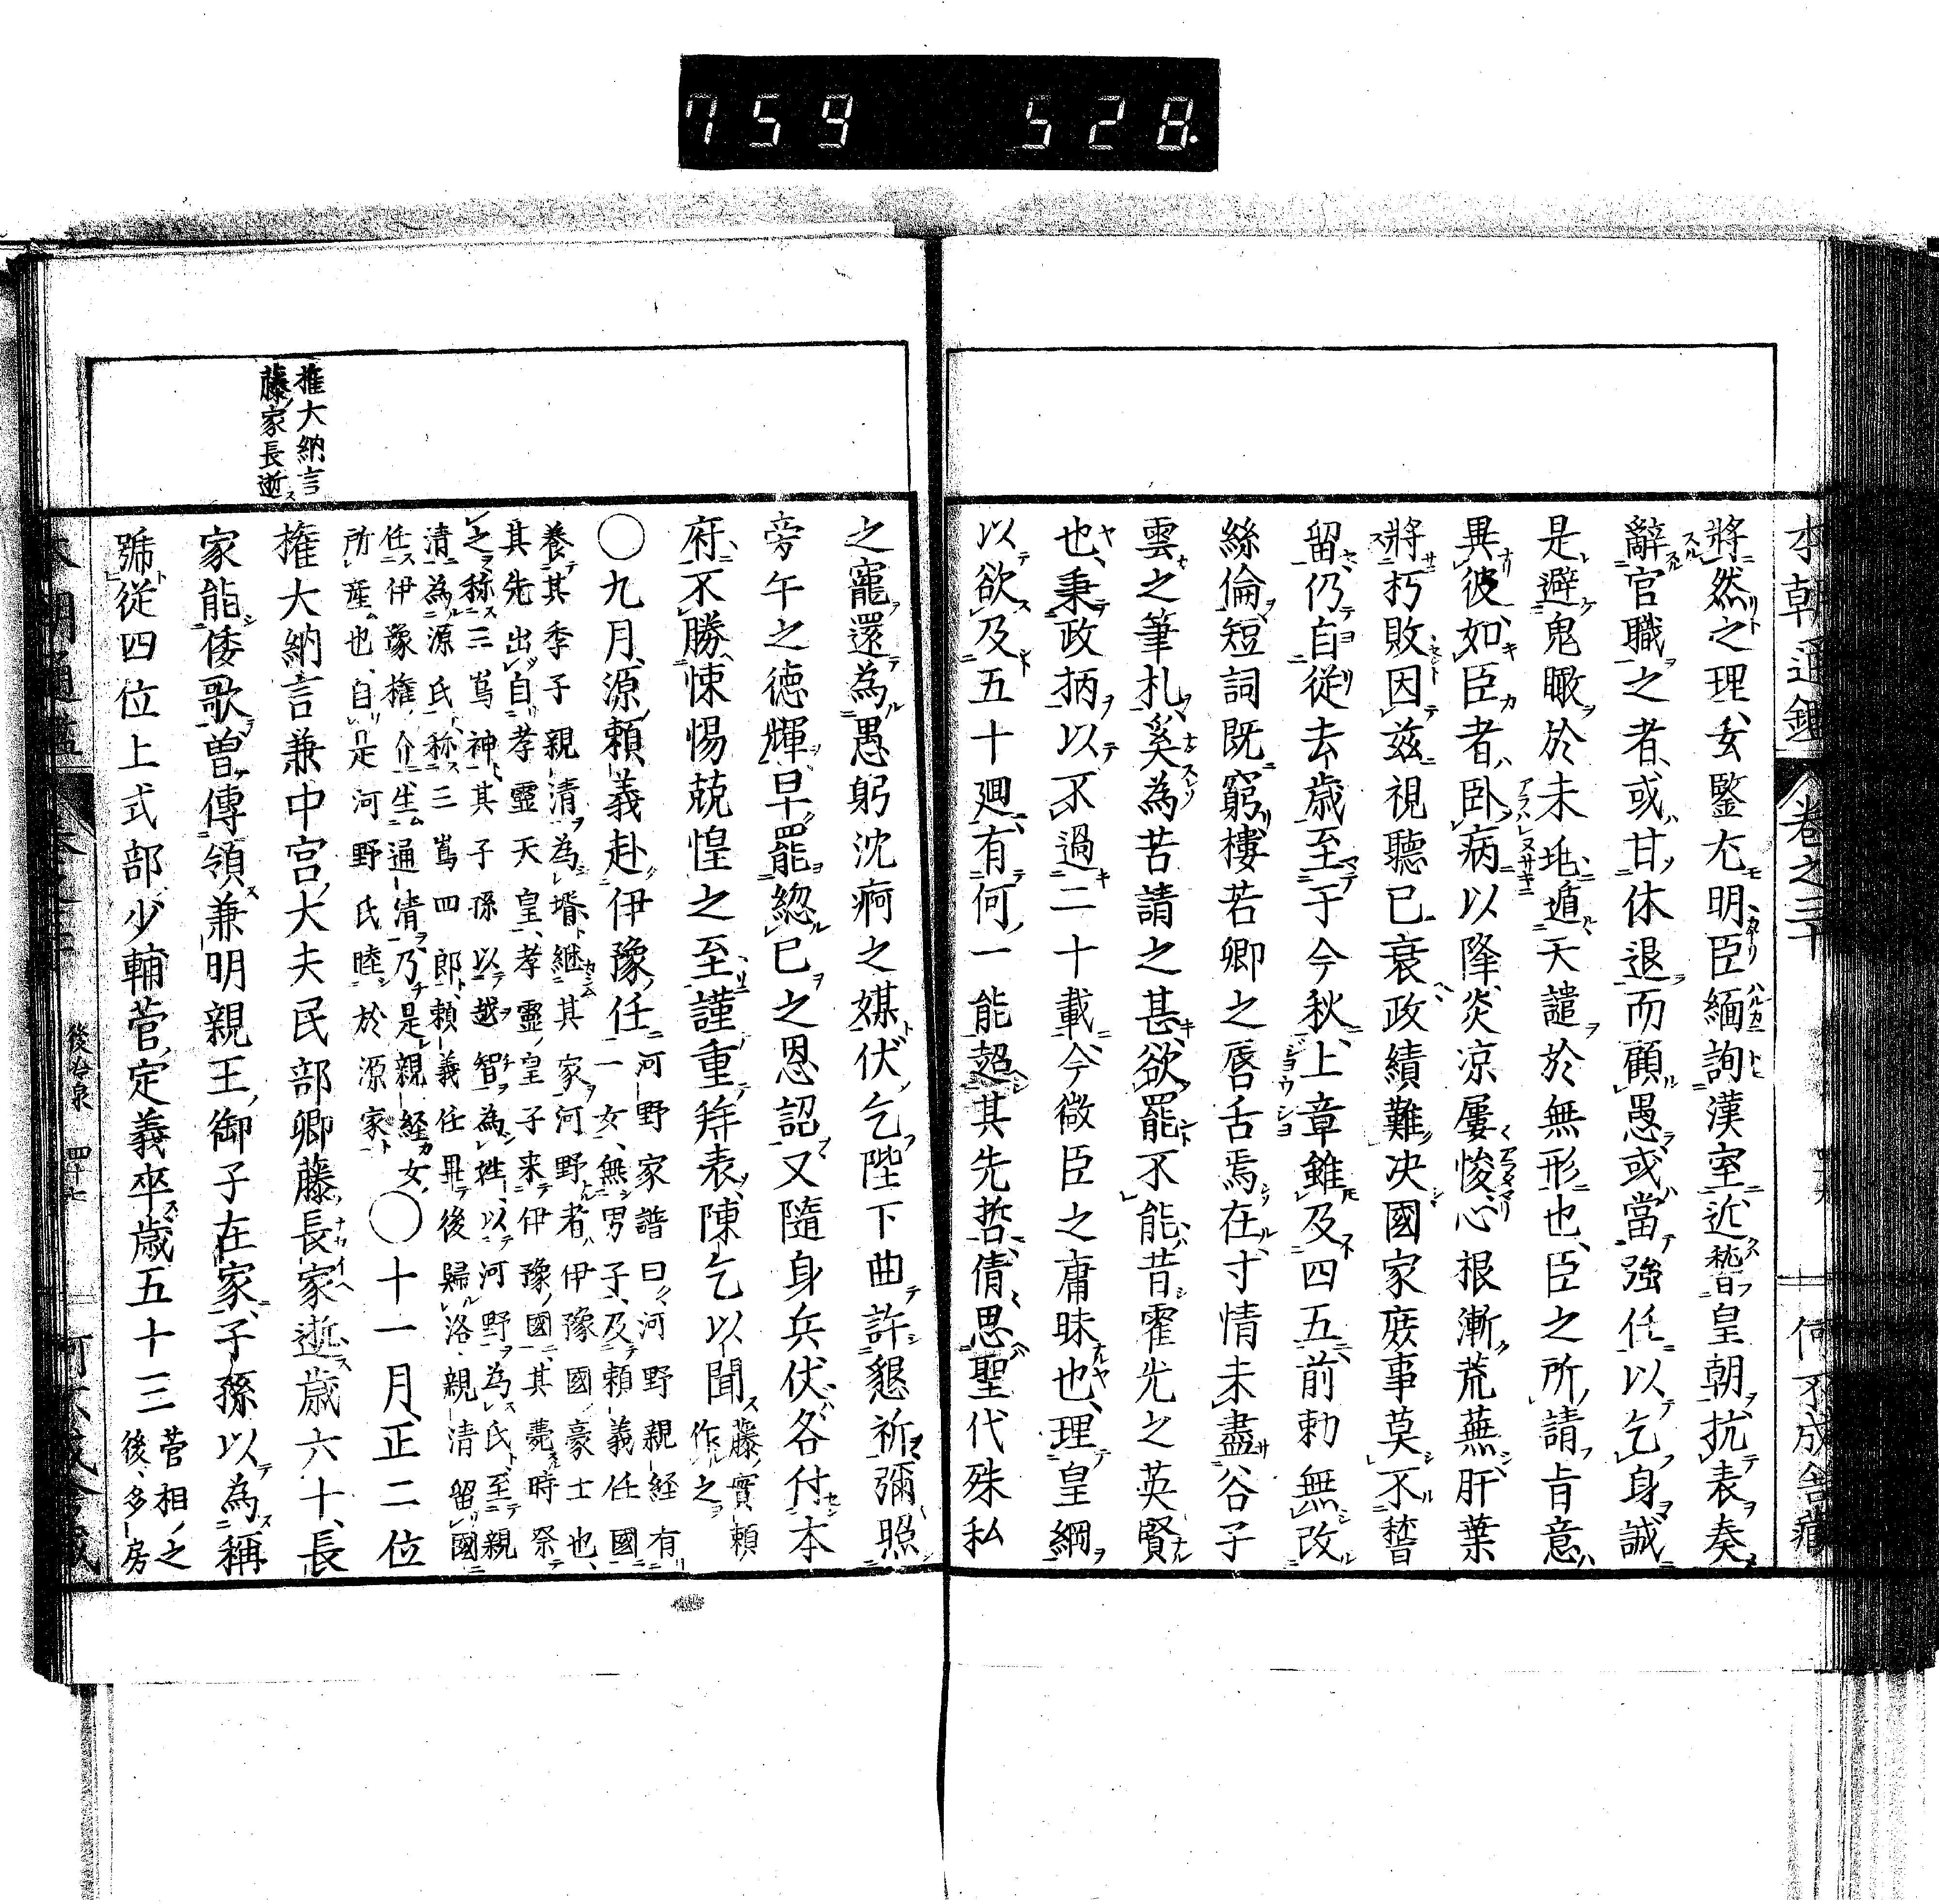 759 528
本朝通鑑 卷之三十 何不成舎藏
將然之理、玄鑒尤明、臣緬詢漢室、近稽皇朝、抗表奏
辭官職之者、或甘休退而顧愚、或當強任以乞身、誠
是避鬼瞰於未兆、遁天譴於無形也、臣之所請、旨意
異彼、如臣者、臥病以降、炎涼屢悛、心根漸荒蕪、肝葉
將朽敗、因茲視聽已衰、政績難決、國家庶事莫不替
留、仍自從去歲至于今秋、上章雖及四五、前勅無改
絲倫短詞既窮、樓若卿之唇舌焉在、寸情未盡、谷子
雲之筆札奚為、苦請之甚、欲罷不能、昔霍光之英賢
也、秉政柄以不過二十載、今微臣之庸昧也、理皇綱
以欲及五十廻、有何一能超其先哲、倩思聖代殊私
之寵、還為愚躬沈痾之媒、伏乞陛下曲許懇祈、彌照
旁午之德輝、早罷總己之恩詔、又隨身兵仗、各付本
府、不勝悚惕兢惶之至、謹重拜表、陳乞以聞 藤實賴
作之
〇九月、源賴義赴伊豫任 河野家譜曰、河野親經有
一女、無男子、及賴義任國
養其季子親清為壻、繼其家、河野者、伊豫國豪士也、
其先出自孝靈天皇、孝靈皇子来伊豫國、其薨時祭
之称三嶌神、其子孫以越智為姓、以河野為氏、至親
清為源氏、称三嶌四郎、賴義任畢後歸洛、親清留國
任伊豫權介、生通清、乃是親経女
所産也、自是河野氏睦於源家 〇十一月、正二位
權大納言兼中宮大夫民部卿藤長家逝、歲六十、長
家能倭歌、曽傳領兼明親王御子在家、子孫以為稱
號、從四位上式部少輔菅定義卒、歲五十三 菅相之
後、多房
權大納言
藤家長逝
後冷泉 四十七